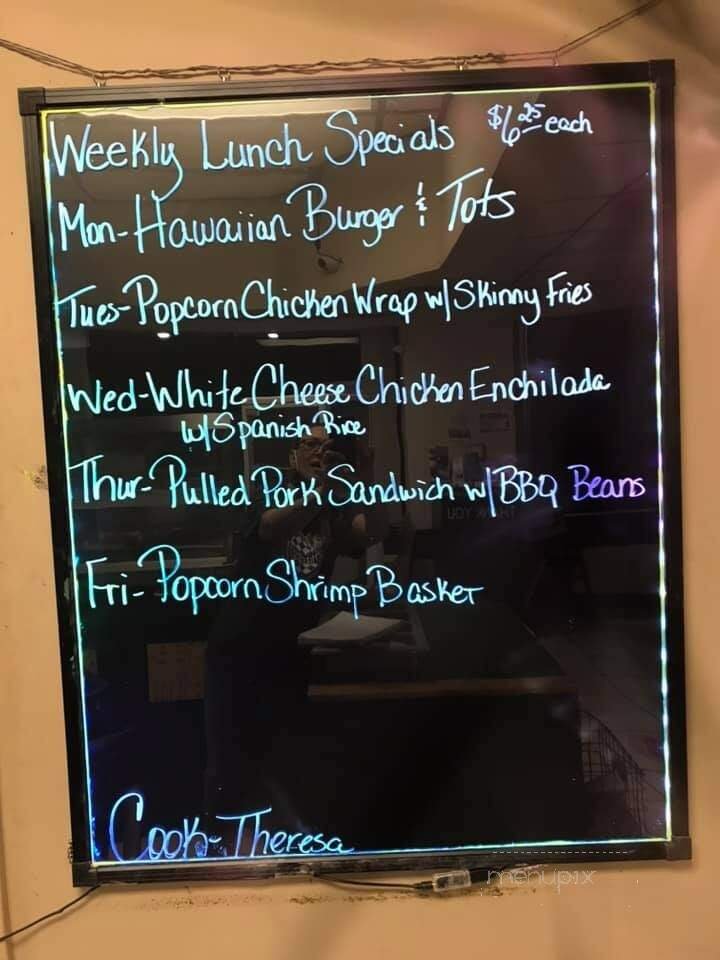 Weekly Lunch Specials $6.25 each
Mon-Hawaiian Burger & Tots
Tues-Popcorn Chicken Wrap w/Skinny Fries
Wed-White Cheese Chicken Enchilada
w/Spanish Rice
Thur-Pulled Pork Sandwich w/BBQ Beans
Fri-Popcorn Shrimp Basket
Cook-Theresa
menupix